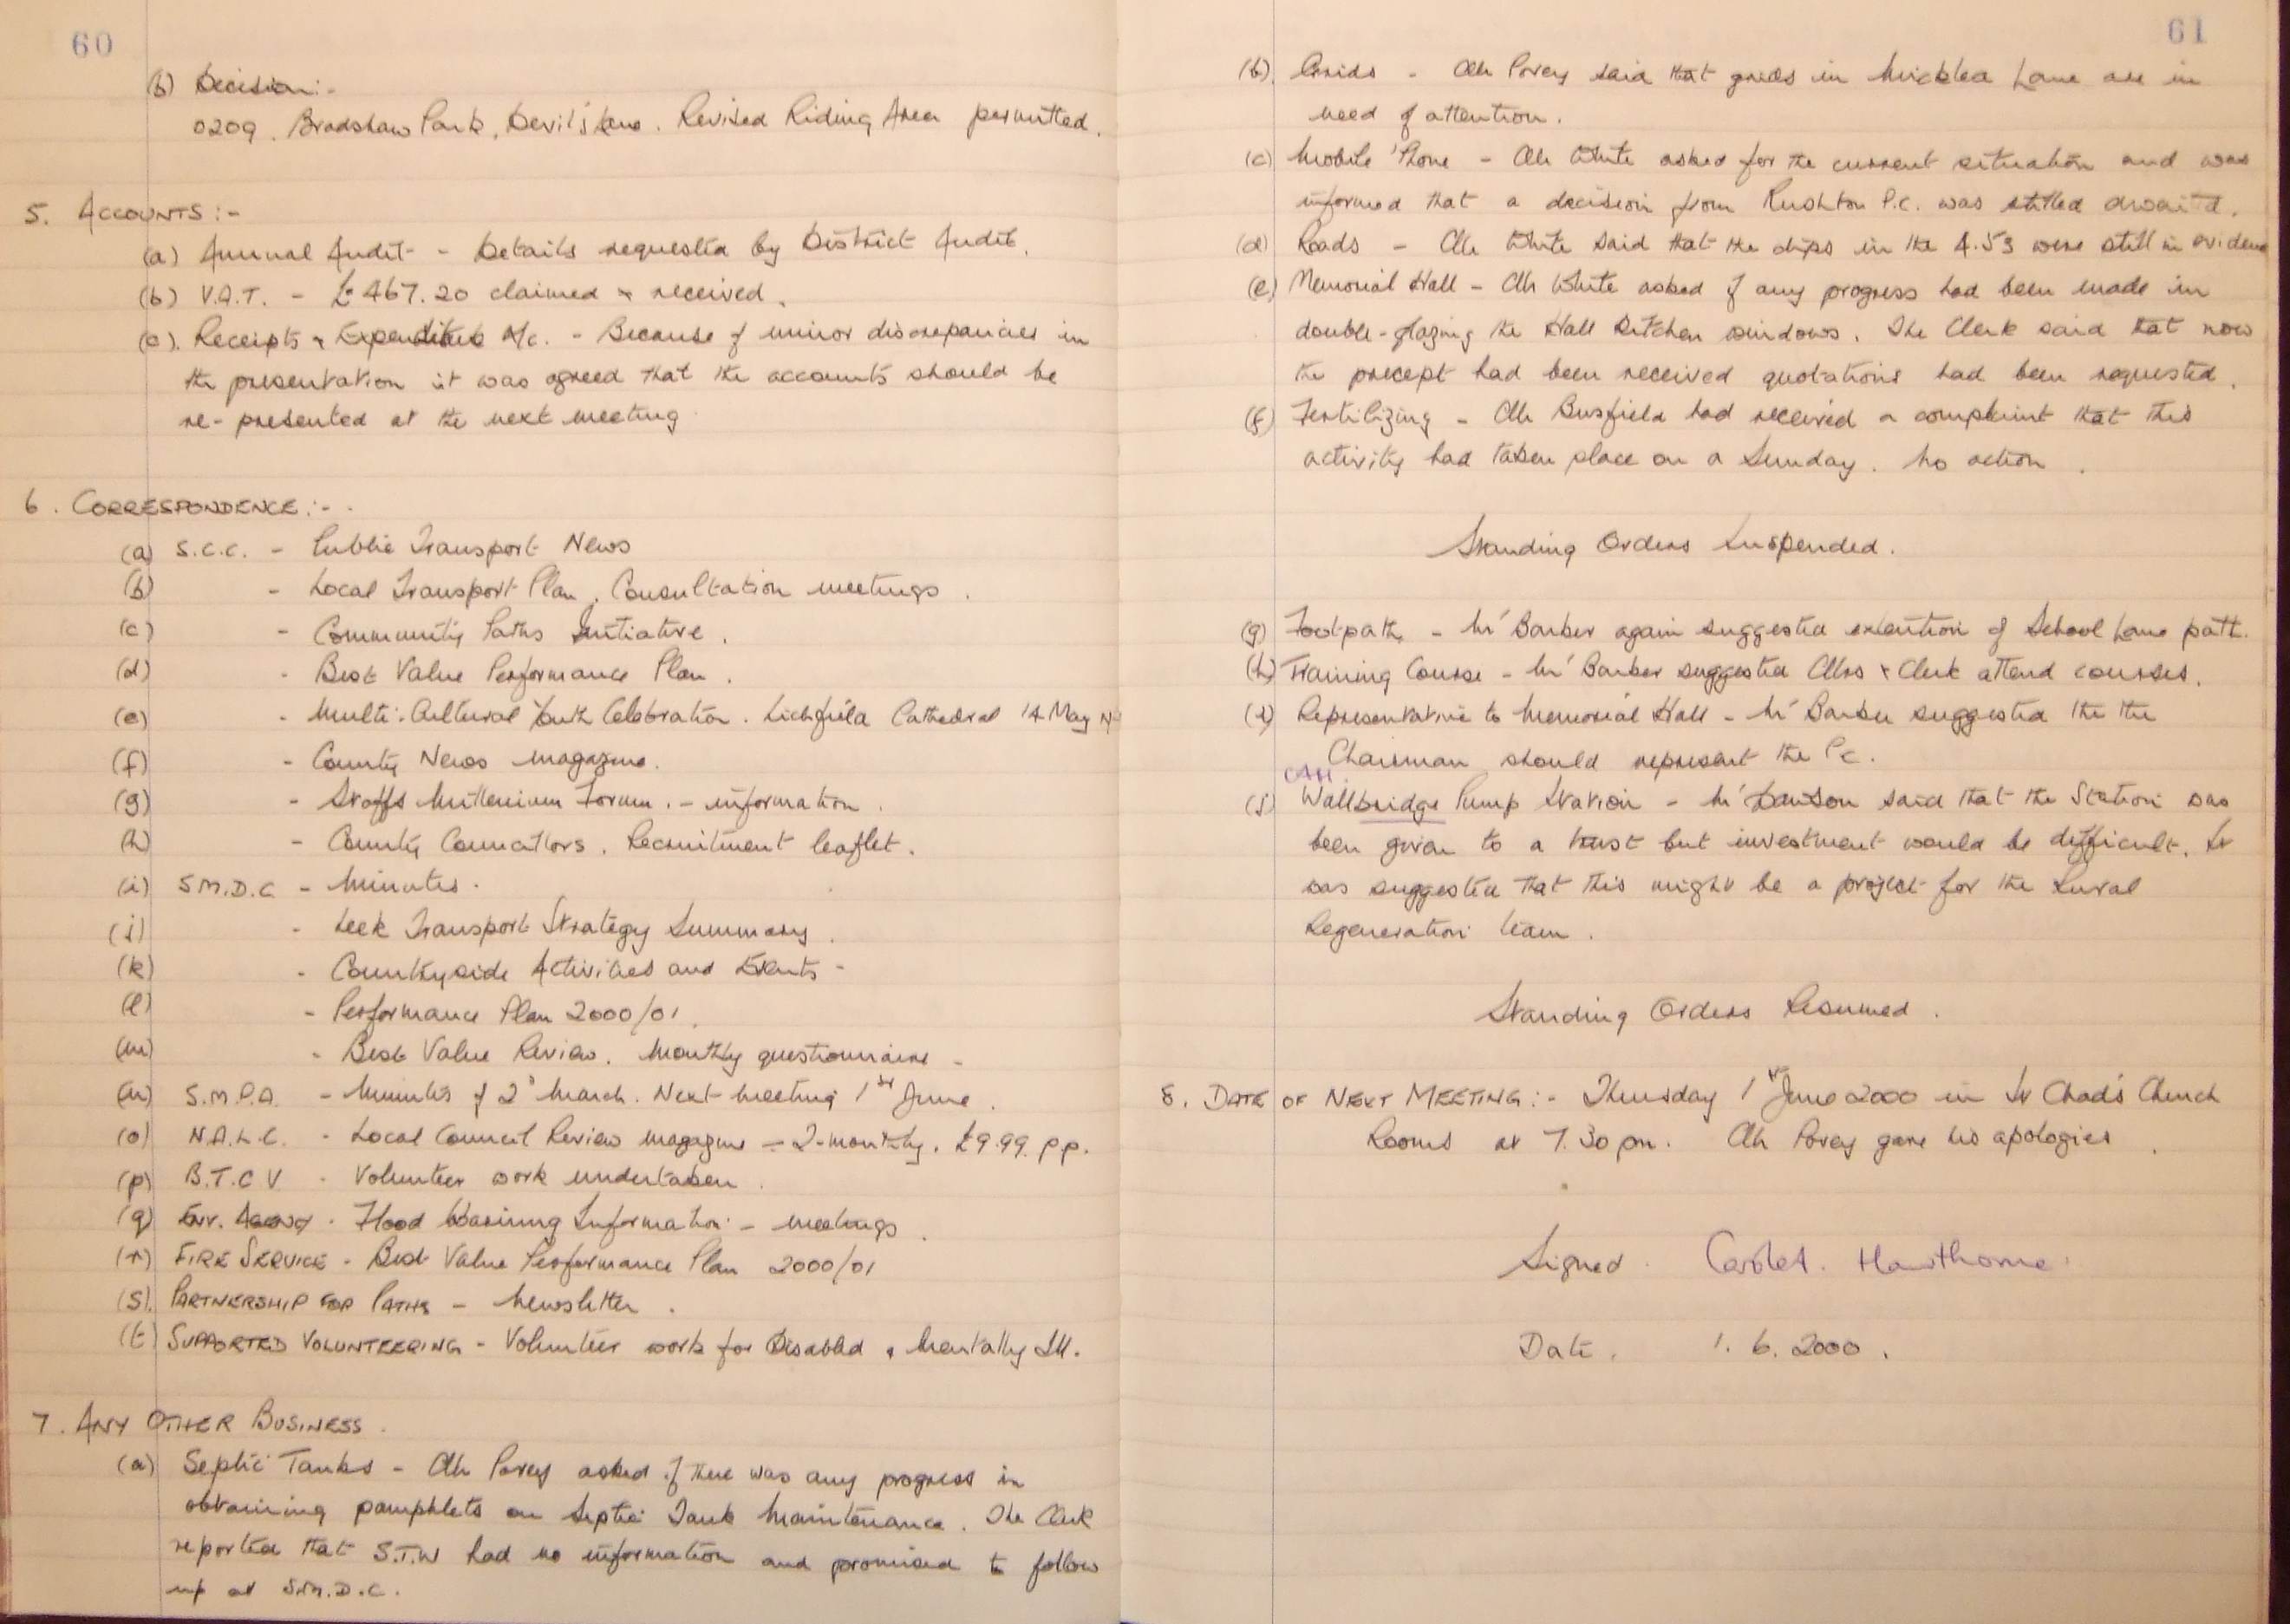 60
(b) Decision:-
0209. Bradshaw Park, Devil's Lane. Revised Riding Area permitted.
5. ACCOUNTS:-
(a) Annual Audit - Details requested by District Audit.
(b) V.A.T. - £467.20 claimed & received.
(c). Receipts & Expenditure A/c. - Because of minor discrepancies in
the presentation it was agreed that the accounts should be
re-presented at the next meeting
6. CORRESPONDENCE:-
(a) S.C.C. - Public Transport News
(b) - Local Transport Plan. Consultation meetings.
(c) - Community Paths Initiative.
(d) - Best Value Performance Plan.
(e) - Multi-Cultural Youth Celebration. Lichfield Cathedral 14 May
(f) - County News magazine.
(g) - Staffs Millenium Forum. - information.
(h) - County Councillors. Recruitment leaflet.
(i) S.M.D.C - Minutes.
(j) - Leek Transport Strategy Summary.
(k) - Countryside Activities and Events -
(l) - Performance Plan 2000/01.
(m) - Best Value Review. Monthly questionnaire -
(n) S.M.P.A. - Minutes of 2d March. Next meeting 1st June.
(o) N.A.L.C. - Local Council Review magazine - 2-monthly. £9.99. p.p.
(p) B.T.C.V. - Volunteer work undertaken.
(q) Env. Agency - Flood Warning Information - meetings.
(r) FIRE SERVICE - Best Value Performance Plan 2000/01
(s). PARTNERSHIP FOR PATHS - Newsletter.
(t) SUPPORTED VOLUNTEERING - Volunteer work for Disabled & Mentally Ill.
7. ANY OTHER BUSINESS.
(a) Septic Tanks - Cllr Povey asked if there was any progress in
obtaining pamphlets on Septic Tank Maintenance. The Clerk
reported that S.T.W had no information and promised to follow
up at S.M.D.C.
61
(b). Grids - Cllr Povey said that grids in Micklea Lane are in
need of attention.
(c) Mobile 'Phone - Cllr White asked for the current situation and was
informed that a decision from Rushton P.C. was stilled awaited.
(d) Roads - Cllr White said that the dips in the A.53 were still in evidence
(e) Memorial Hall - Cllr White asked if any progress had been made in
double-glazing the Hall Kitchen windows. The Clerk said that now
the precept had been received quotations had been requested.
(f) Fertilizing - Cllr Busfield had received a complaint that this
activity had taken place on a Sunday. No action.
Standing Orders Suspended.
(g) Footpath - Mr Barber again suggested extention of School Lane path.
(h) Training Course - Mr Barber suggested Cllrs & Clerk attend courses.
(i) Representative to Memorial Hall - Mr Barber suggested the the
Chairman should represent the Pc.
(j) Wallbridge Pump Station - Mr Dawson said that the Station was
been given to a trust but investment would be difficult. It
was suggested that this might be a project for the Rural
Regeneration team.
Standing Orders Resumed.
8. DATE OF NEXT MEETING:- Thursday 1st June 2000 in St Chad's Church
Rooms at 7.30pm. Cllr Povey gave his apologies.
Signed. Hawthorne.
Date. 1.6.2000.